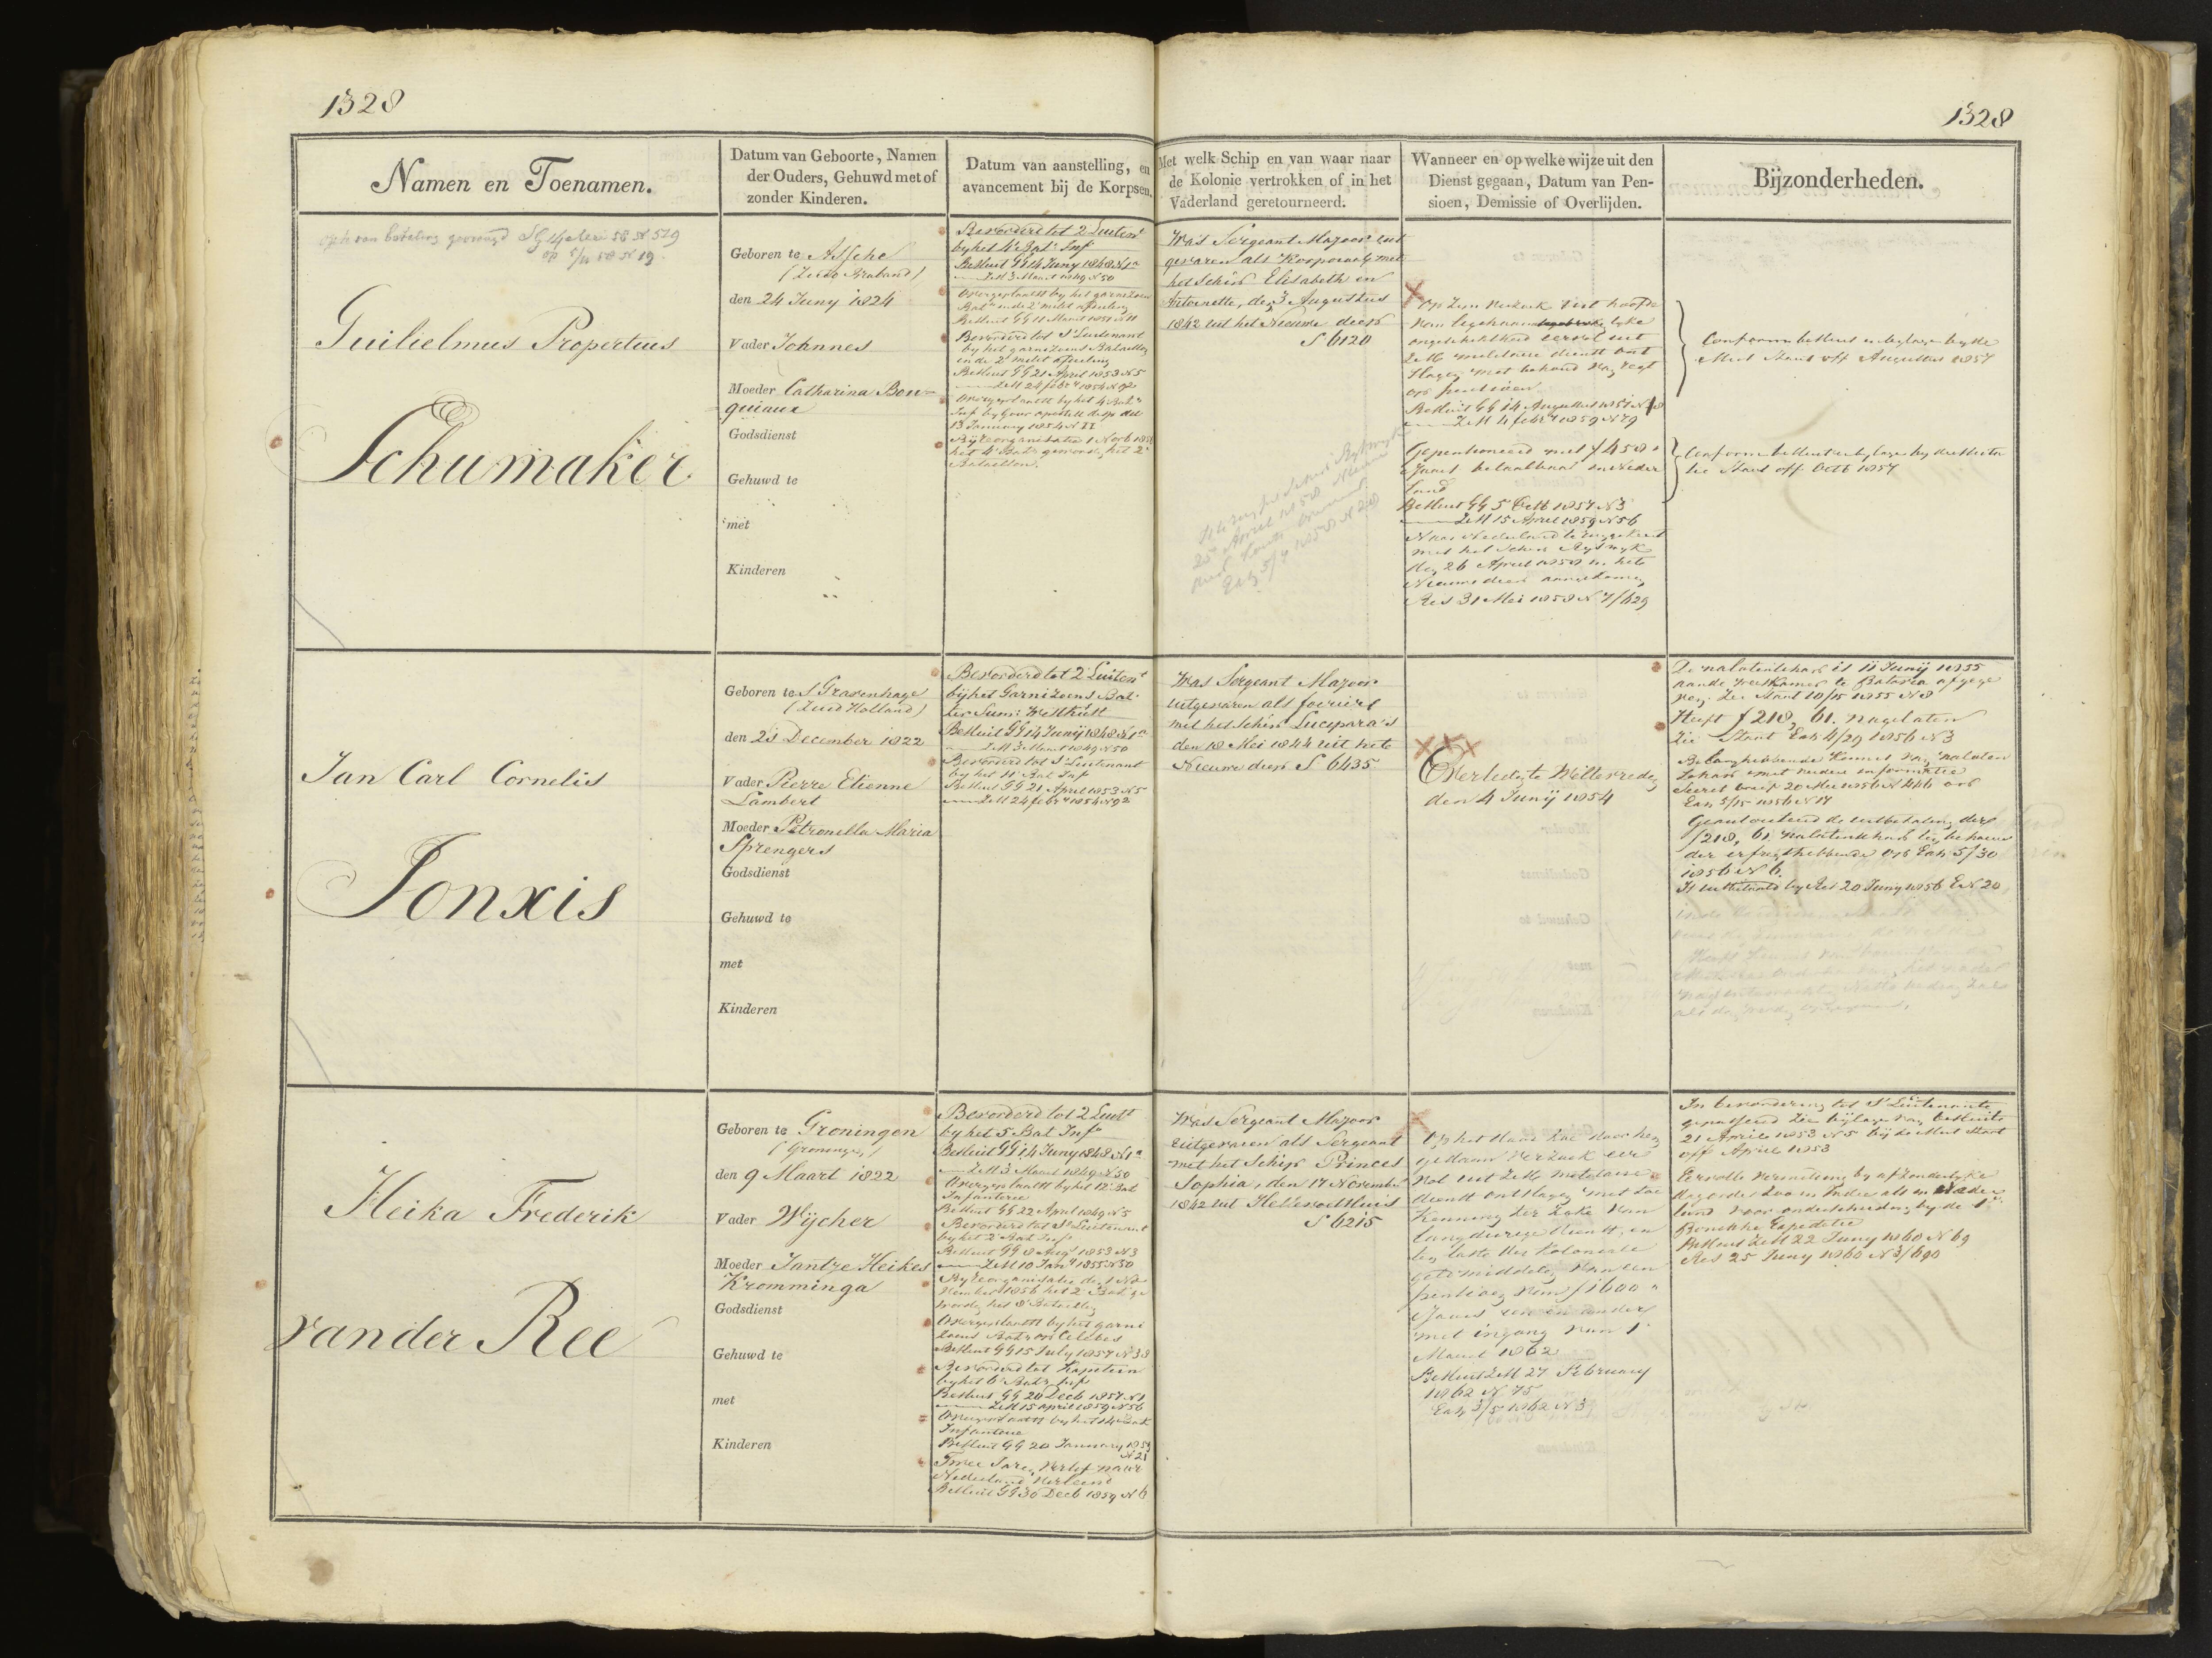 1328
1328
Namen en Toenamen.
Datum van Geboorte, Namen
der Ouders, Gehuwd met of
zonder Kinderen.
Datum van aanstelling, en
avancement bij de Korpsen.
Met welk Schip en van waar naar
de Kolonie vertrokken of in het
Vaderland geretourneerd.
Wanneer en op welke wijze uit den
Dienst gegaan, Datum van Pen-
sioen, Demissie of Overlijden.
Bijzonderheden.
Guilielmus Propertius
Schumaker
Geboren te Assche
(Zuid Braband)
den 24 Juny 1824
Vader Johnnes
Moeder Catharina Bon-
quiaux
Godsdienst
Gehuwd te
met
Kinderen
Bevorderd tot 2 Luitent
by het 4e Bat. Inf
Besluit GG 14 Juny 1848 N 1a
ZM 3 Maart 1849 N 50
Overgeplaatst by het garnizoens
Bat en de 2e milit afdeeling
Besluit GG 11 Maart 1851 N 11
Bevorderd tot 1e Luitenant
by het garnizoens Bataillon
en de 2e milit afdeeling
Besluit GG 21 April 1853 N 5
ZM 24 febr 1854 N 92
Overgeplaatst by het 4 Bat
Inf by Gouv
13 January 1854 N II
By reorganisatie 1 Novb 185
het 4 Bat geword. het 2
Bataillon.
Was Sergeant Majoor uit
gevaren als Korporaal met
het Schip Elisabeth en
Antoinette, den 3 Augustus
1842 uit het Nieuwe diep
S 6120
Op zyn verzoek uit hoofde
van ligchaamslyke
ongeschiktheid eervol uit
ZM militaire dienst ont
slagen met behoud van regt
op pensioen
Besluit GG 14 Augustus 1857 N 18
ZM 4 febr 1859 N 79
Gepensioneerd met f 450
's Jaars betaalbaar in Neder
land
Besluit GG 5 Octb 1857 N 3
ZM 15 April 1859 N 56
Naar Nederland teruggekeerd
met het Schip Ryswyk
den 26 April 1858 in het
Nieuwe diep aangekomen
Res 31 Mei 1858 N 7/629
Conform besluit en bylagen by de
Mut Staat off Augustus 1857
Conform besluit en bylagen by de Muta
tie Staat off Octb 1857
Jan Carl Cornelis
Jonxis
Geboren te s Gravenhage
(Zuid Holland)
den 23 December 1822
Vader Pierre Etienne
Lambert
Moeder Petronella Maria
Sprengers
Godsdienst
Gehuwd te
met
Kinderen
Bevorderd tot 2 Luitent
bij het Garnizoens Bat.
ter Sum: Westkust
Besluit GG 14 Junij 1848 N 1a
ZM 3 Maart 1849 N 50
Bevorderd tot 1e Luitenant
by het 11 Bat Inf
Besluit GG 21 April 1853 N 5
ZM 24 febr 1854 N 92
Was Sergeant Majoor
uitgevaren als fourier
met het Schip Lucipara's
den 18 Mei 1844 uit het
Nieuwe diep S 6435
Overleden te Weltevreden
den 4 Junij 1854
De nalatenschap is 11 Junij 1855
aan de Weeskamer te Batavia afgege
ven. Zie Staat 10/15 1855 N 8
Heeft f 218, 61. nagelaten
Zie Staat Exh 4/29 1856 N 3
Belanghebbende kennis van nalaten
schap met nadere informatie
Exh 5/15 1856 N 17
Geautoriseerd de uitbetaling der
f 218, 61 nalatenschap ten behoeve
der erfregthebbende Op Exh 5/30
1856 N 6.
Is uitbetaald by Res 20 Juny 1856 N 20
Heika Frederik
van der Ree
Geboren te Groningen
(Groningen)
den 9 Maart 1822
Vader Wijcher
Moeder Jantze Heikes
Kromminga
Godsdienst
Gehuwd te
met
Kinderen
Bevorderd tot 2 Luitt
by het 5 Bat Inf
Besluit GG 14 Juny 1848 N 1a
ZM 3 Maart 1849 N 50
Overgeplaatst by het 12 Bat
Infanterie
Besluit GG 22 April 1849 N 5
Bevorderd tot 1e Luitenant
by het 2 Bat Inf
Besluit GG 8 Aug 1853 N 3
ZM 10 Jan 1855 N 50
By reorganisatie den 1 No
vember 1856 het 2 Bat ge
worden het 8 Bataillon
Overgeplaatst by het garni
zoens Bat op Celebes
Besluit GG 15 July 1857 N 38
Bevorderd tot Kapitein
by het 6 Bat Inf
Besluit GG 20 Decb 1857 N 1
ZM 15 april 1859 N 56
Overgeplaatst by het 14 Bat
Infanterie
Besluit GG 20 January 1859
N 21
Twee Jaren verlof naar
Nederland verleend
Besluit GG 30 Decb 1859 N 6
Was Sergeant Majoor
uitgevaren als Sergeant
met het Schip Princes
Sophia, den 17 November
1842 uit Hellevoetsluis
S 6215
Op het daar toe door hem
gedaan verzoek eer
vol uit ZM militaire
dienst ontslagen met toe
kenning ter zake van
langdurige dienst, en
ten laste der Koloniale
geldmiddelen van een
pensioen van f 1600
's Jaars een en ander
met ingang van 1
Maart 1862
Besluit ZM 27 February
1862 N 75
Exh 3/5 1862 N 3
In bevordering tot 1e Luitenante
gepasseerd Zie bijlage van besluit
21 April 1853 N 5 bij de Mut Staat
off April 1853
Eervolle vermelding by afzonderlyke
dagorder zoo in Indie als in Neder
land voor onderscheiding by de 1e
Bonische Expeditie
Besluit ZM 22 Juny 1860 N 69
Res 25 Juny 1860 N 3/690